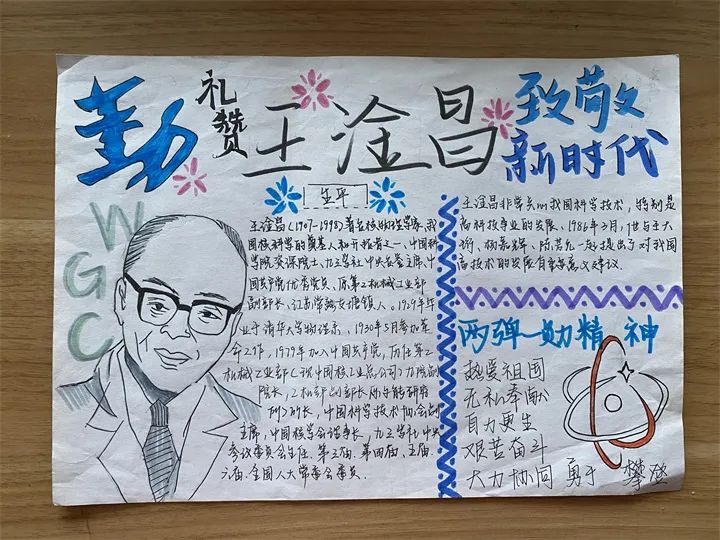 勤
礼赞
王淦昌
致敬
新时代
WGC
生平
王淦昌(1907-1998)著名核物理学家、我
国核科学的奠基人和开拓者之一、中国科
学院资深院士、九三学社中央名誉主席、中
国共产党优秀党员、原第二机械工业部
副部长、江苏常熟支塘镇人。1929年毕
业于清华大学物理系、1930年5月参加革
命工作,1979年加入中国共产党,历任第二
机械工业部(现中国核工业总公司)九院副
院长,二机部副部长兼原子能研究
所所长,中国科学技术协会副
主席,中国核学会理事长、九三学社中央
参议委员会主任、第三届、第四届、五届、
六届、全国人大常委会委员.
王淦昌非常关心我国科学技术,特别是
高科技事业的发展、1986年3月,他与王大
珩、杨嘉墀、陈芳允一起提出了对我国
高技术的发展有重要意义建议.
两弹一勋精 神
热爱祖国
无私奉献
自力更生
艰苦奋斗
大力协同 勇于 攀登